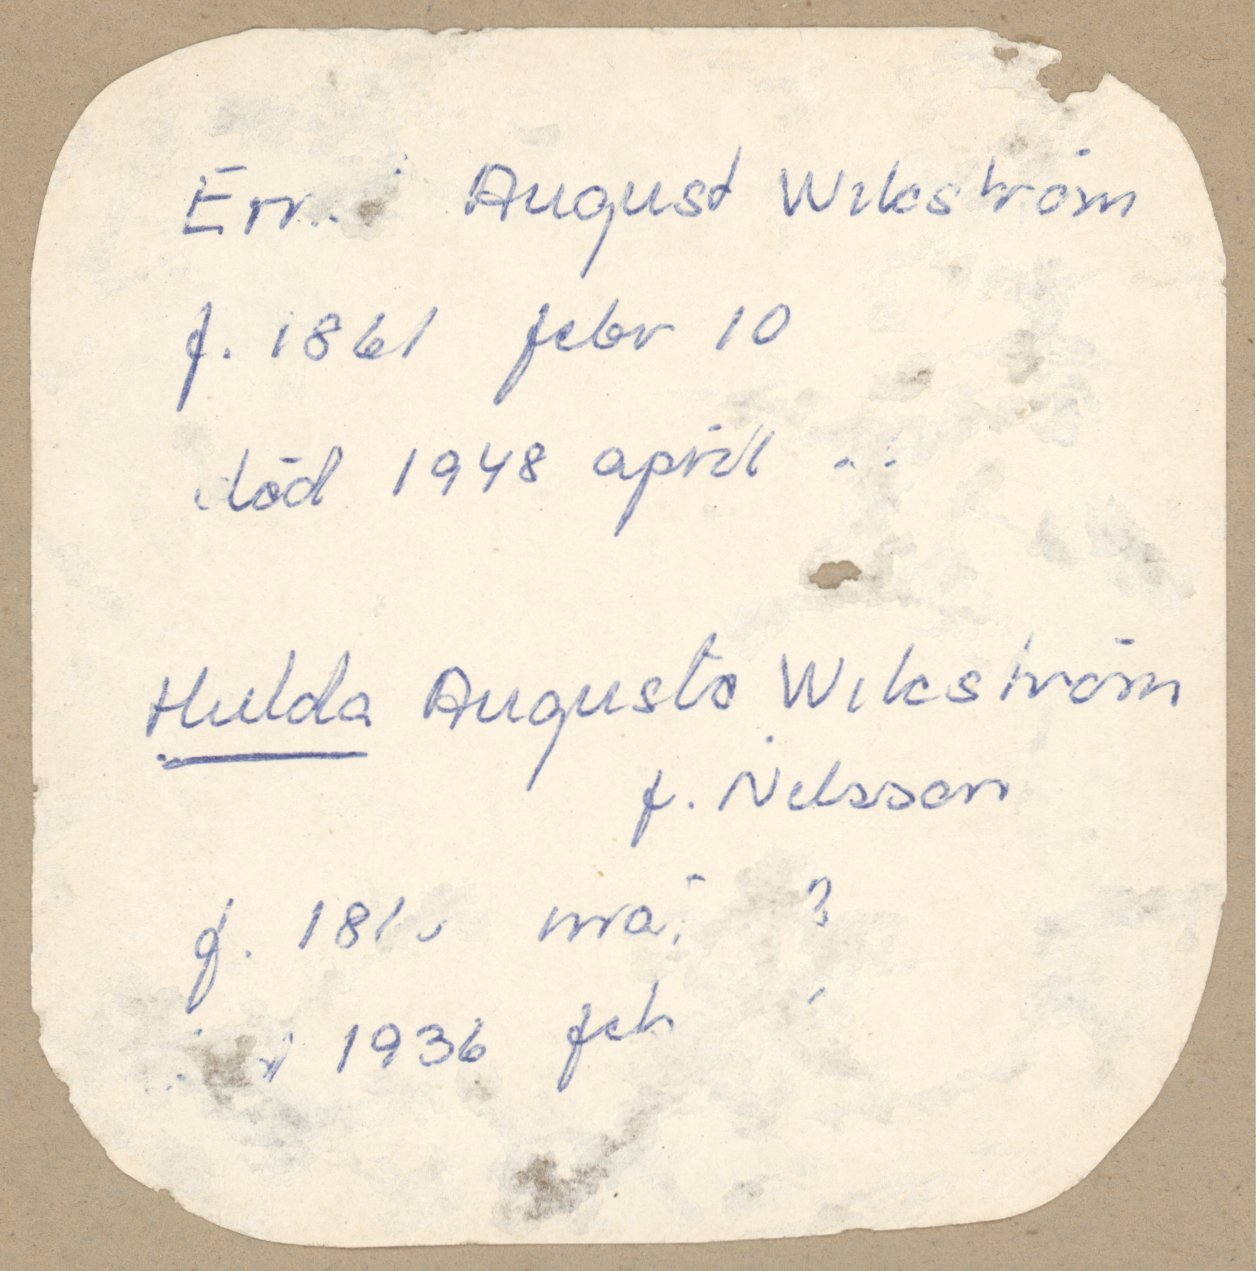 August Wikström
f. 1861 febr 10
död 1948 april
Hulda Augusta Wikström
f. Nilsson
f. maj ?
1936 feb